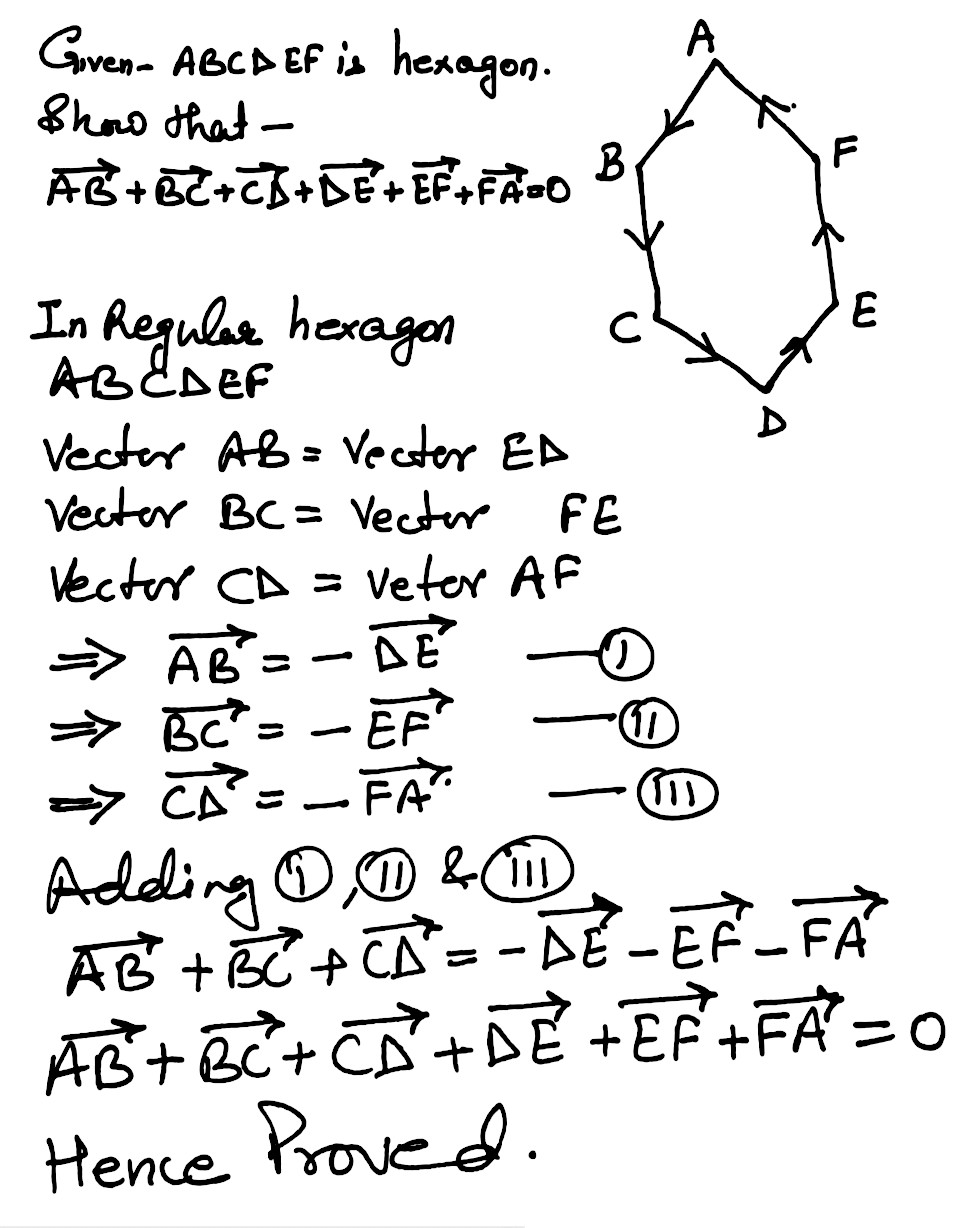 Given- ABCDEF is hexagon.
Show that –
$\overrightarrow{AB}+\overrightarrow{BC}+\overrightarrow{CD}+\overrightarrow{DE}+\overrightarrow{EF}+\overrightarrow{FA}=0$
A
B
F
C
E
D
In Regular hexagon
ABCDEF
Vector AB = Vector ED
Vector BC = Vector FE
Vector CD = Vetor AF
⇒ $\overrightarrow{AB} = -\overrightarrow{DE}$ —Ⓘ
⇒ $\overrightarrow{BC} = -\overrightarrow{EF}$ —(II)
⇒ $\overrightarrow{CD} = -\overrightarrow{FA}$ —(III)
Adding Ⓘ, (II) & (III)
$\overrightarrow{AB}+\overrightarrow{BC}+\overrightarrow{CD} = -\overrightarrow{DE}-\overrightarrow{EF}-\overrightarrow{FA}$
$\overrightarrow{AB}+\overrightarrow{BC}+\overrightarrow{CD}+\overrightarrow{DE}+\overrightarrow{EF}+\overrightarrow{FA}=0$
Hence Proved.